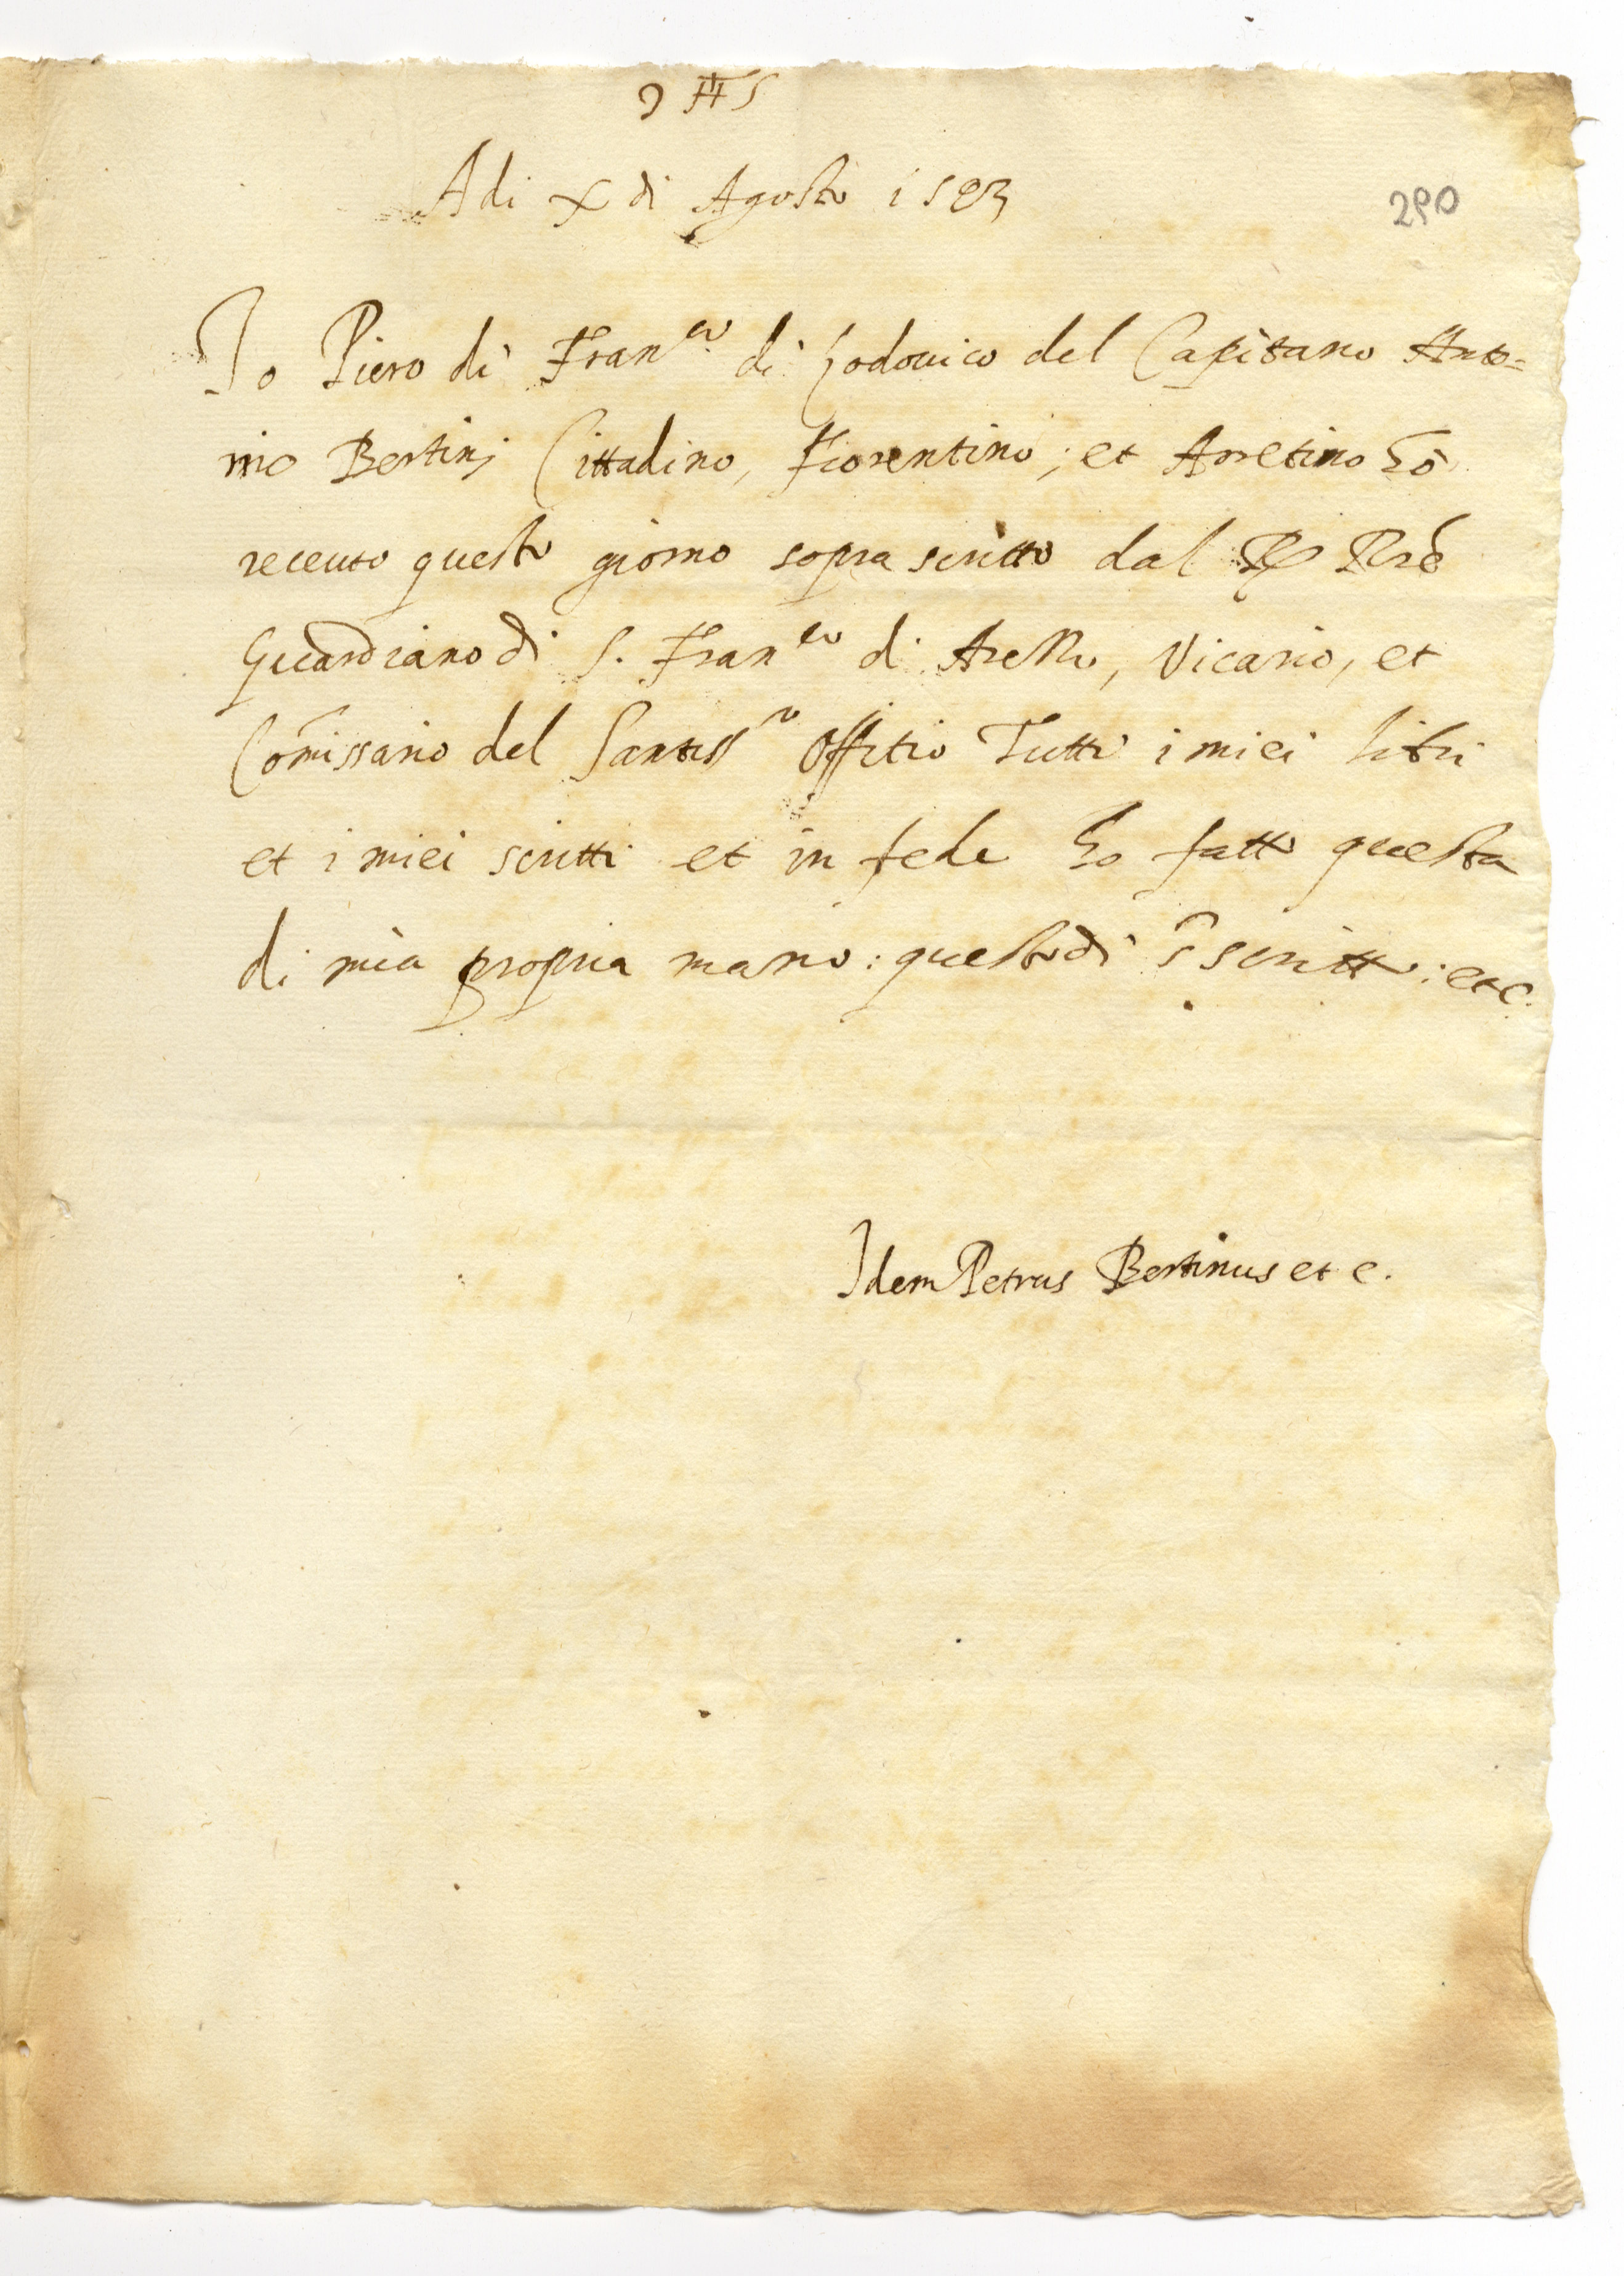 JHS
Adi X di Agosto 1593
290
Io Piero di Fran.co di Lodouico del Capitano Anto=
nio Bertinj Cittadino, Fiorentino; et Arretino hò
receuto questo giorno soprascritto dal R Pr̃e
Guardiano di S. Fran.co di Arezzo, Vicario, et
Com̃issario del Santiss.o Offitio Tutti i miei libri
et i miei scritti et in fede ho fatto questa
di mia propria mano: questo di s̃scritto: etc.
Idem Petrus Bertinus et c.